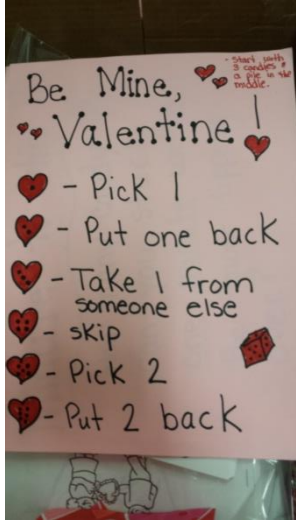 Be Mine,
Valentine!
- Start with
3 candies &
a pile in the
middle.
- Pick 1
- Put one back
- Take 1 from
someone else
- skip
- Pick 2
- Put 2 back